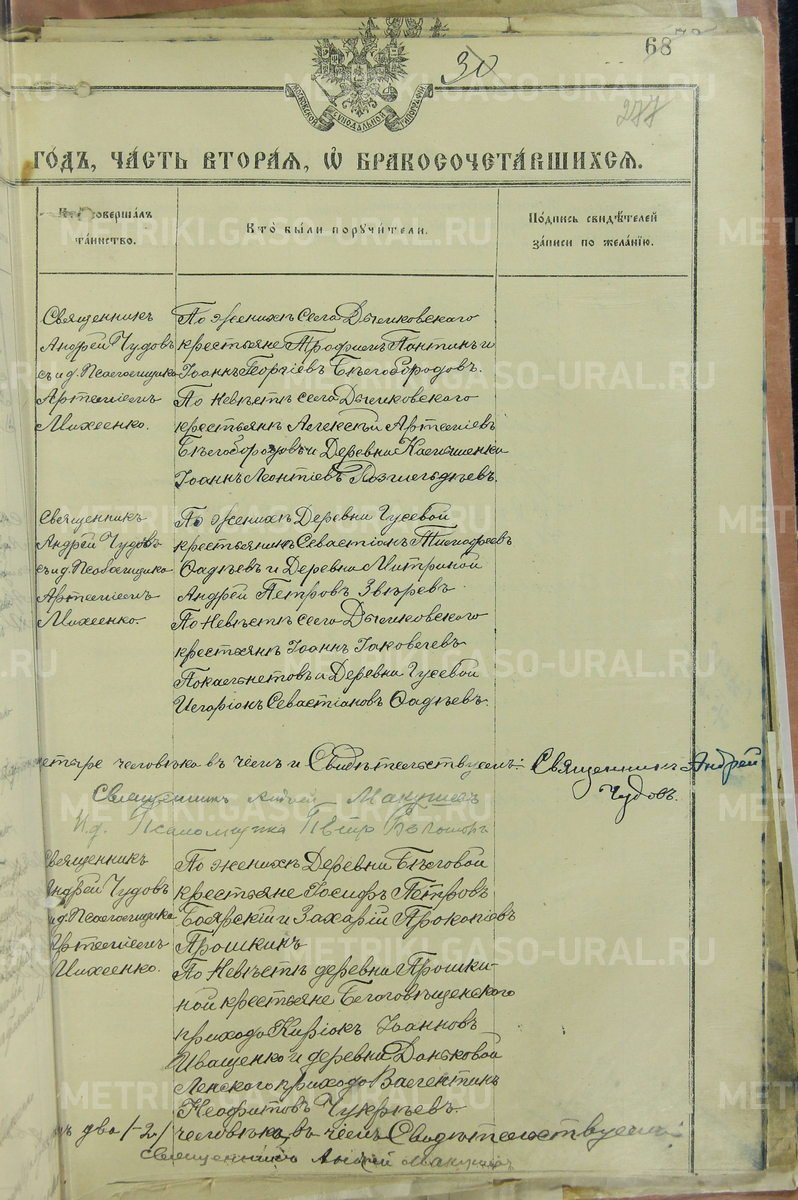 68
30
277
МОСКОВСКОЙ СѴНОДАЛЬНОЙ ТИПОГРАФІИ
ГО́ДЪ, ЧА́СТЬ ВТОРА́Я, Ѡ БРАКОСОЧЕТА́ВШИХСЯ.
Кто̀ соверша́лъ та́инство.
Кто̀ бы́ли порꙋчи́тели.
По́дпись свидѣ́телей за́писи по жела́нїю.
Священникъ
Андрей Чудовъ
съ и.д. Псаломщика
Артеміемъ
Михеенко.
По женихѣ села Дымковскаго
крестьяне Трофимъ Пантинъ и
Іоаннъ Георгіевъ Бѣлобородовъ.
По невѣстѣ села Дымковскаго
крестьянѣ Алексѣй Артеміевъ
Бѣлобородовъ и Деревни
Іоаннъ Леонтіевъ
Священникъ
Андрей Чудовъ
съ и.д. Псаломщика
Артеміемъ
Михеенко.
По женихѣ Деревни Гусевой
крестьянинъ Севастіанъ Тимофеевъ
Фадѣевъ и Деревни Митриной
Андрей Петровъ Звѣревъ
По невѣстѣ села Дымковскаго
крестьянѣ Іоаннъ Іаковлевъ
и Деревни Гусевой
Иларіонъ Севастіановъ Фадѣевъ.
четыре человѣка въ чемъ и Свидѣтельствуемъ: Священникъ Андрей
Чудовъ.
Священникъ Андрей
И.д. Псаломщика Петръ
Священникъ
Андрей Чудовъ
и.д. Псаломщика
Артеміемъ
Михеенко.
По женихѣ Деревни Бѣловой
крестьяне Іосифъ Петровъ
Боярскій и Захарій Прокопіевъ
Прошкинъ
По невѣстѣ деревни Прошки-
ной крестьяне Благовѣщенскаго
прихода Кирикъ Іоанновъ
Иващенко и деревни Доньковой
Ленскаго прихода Валентинъ
Неофитовъ Чукрѣевъ.
два /-2/ человѣка, въ чемъ Свидѣтельствуемъ:
Священникъ Андрей
METRIKI.GASO-URAL.RU